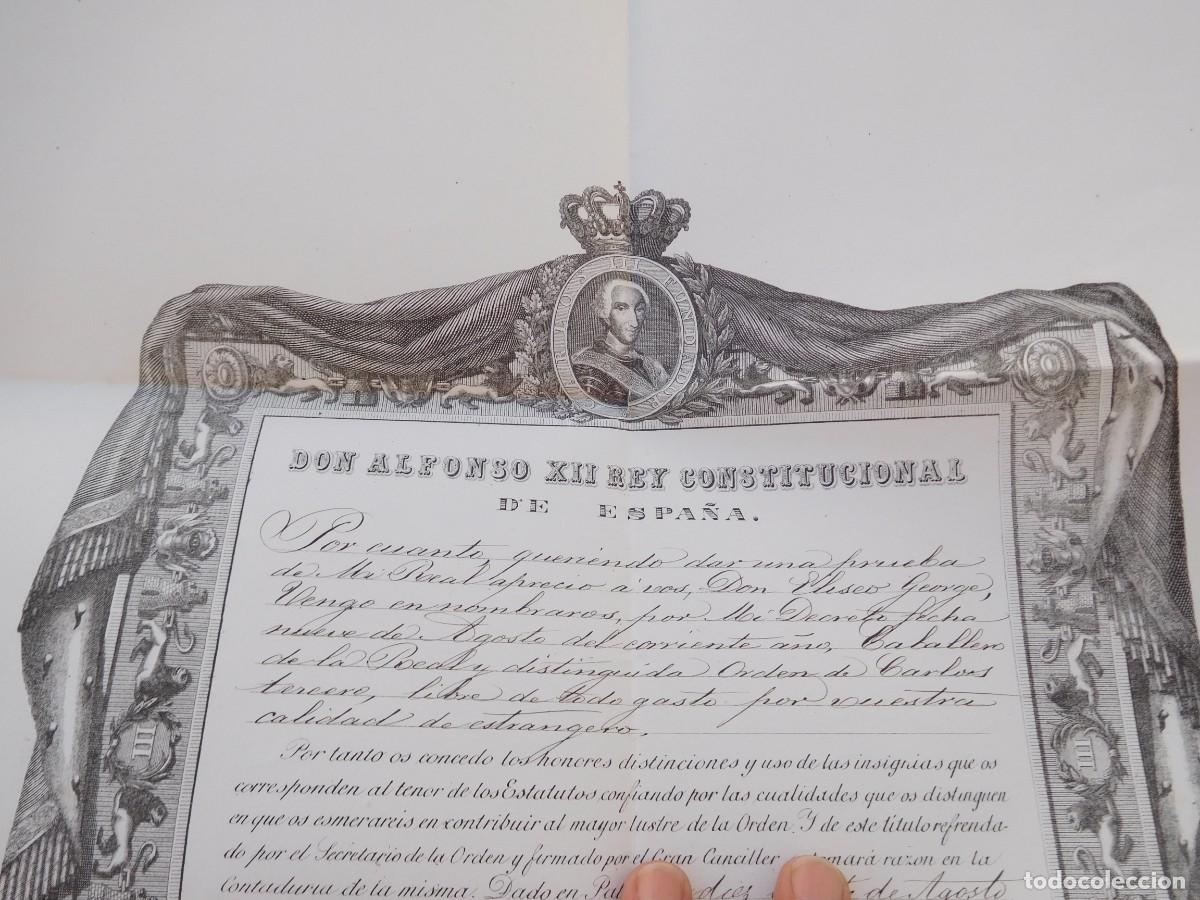 CARLOS III FUNDADOR
DON ALFONSO XII REY CONSTITUCIONAL
DE ESPAÑA.
Por cuanto, queriendo dar una prueba
de Mi Real aprecio á vos, Don Eliseo George,
Vengo en nombraros, por Mi Decreto fecha
nueve de Agosto del corriente año, Caballero
de la Real y distinguida Orden de Carlos
tercero, libre de todo gasto por vuestra
calidad de estrangero.
Por tanto os concedo los honores distinciones y uso de las insignias que os
corresponden al tenor de los Estatutos, confiando por las cualidades que os distinguen
en que os esmerareis en contribuir al mayor lustre de la Orden. Y de este título refrenda-
do por el Secretario de la Orden y firmado por el Gran Canciller se tomará razon en la
Contaduria de la misma. Dado en diez de Agosto
III
III
todocoleccion